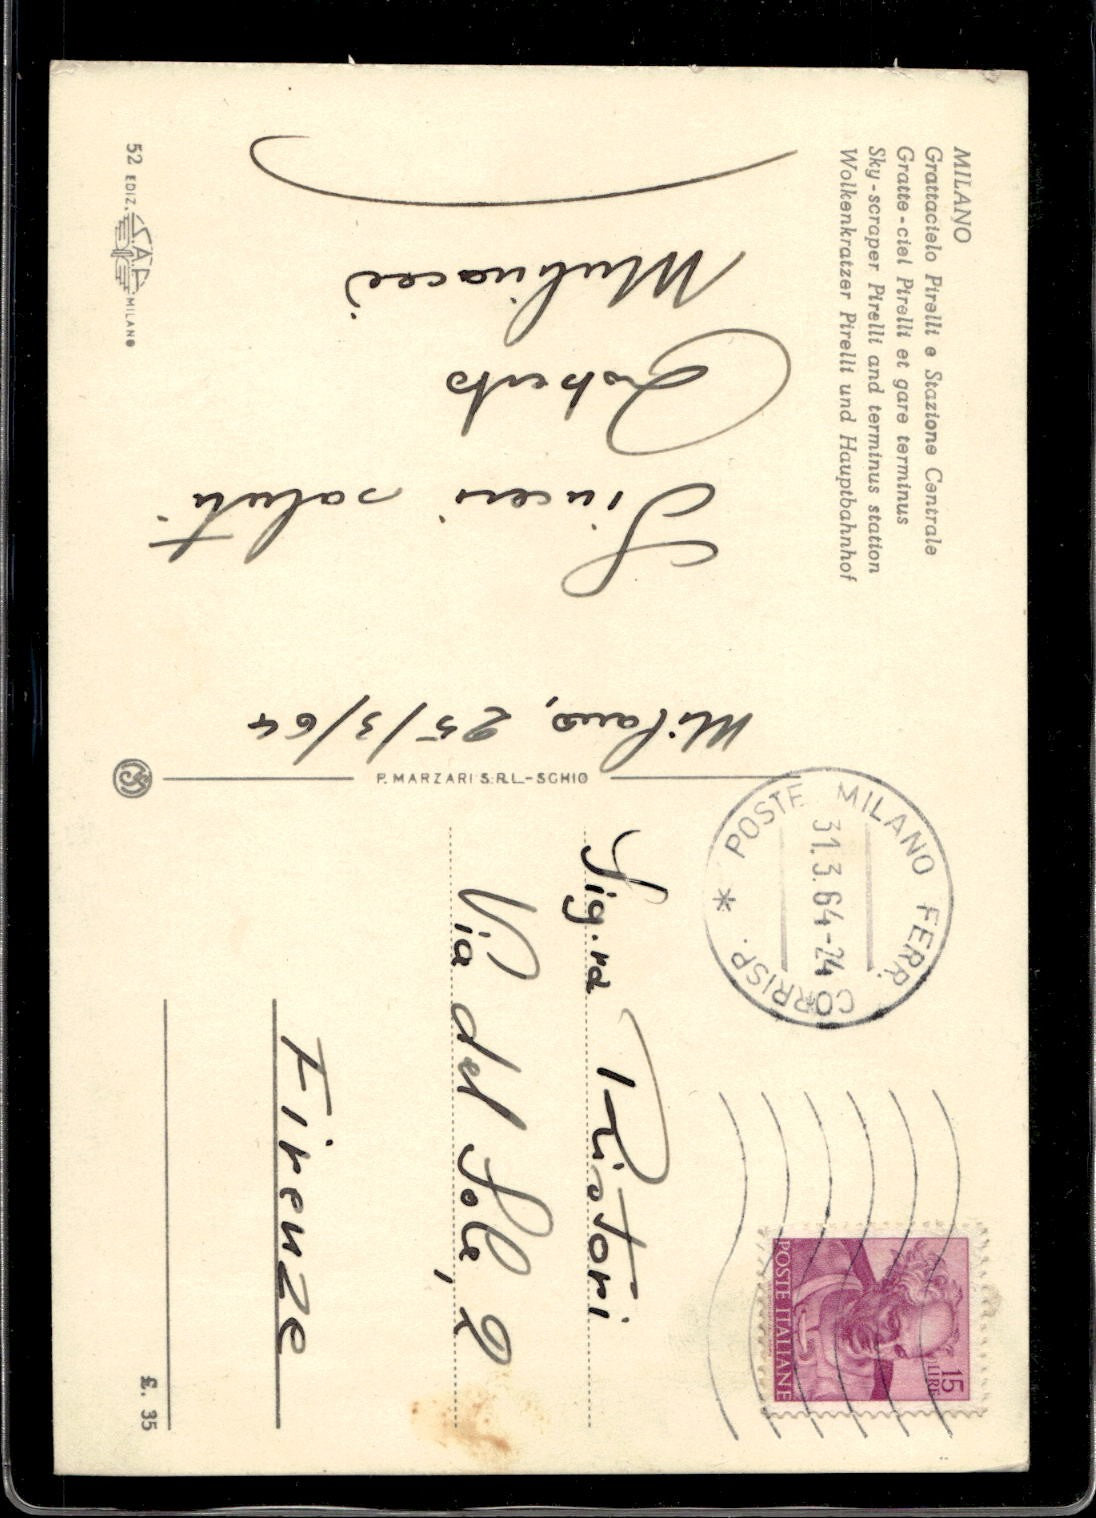 MILANO
Grattacielo Pirelli e Stazione Centrale
Gratte-ciel Pirelli et gare terminus
Sky-scraper Pirelli and terminus station
Wolkenkratzer Pirelli und Hauptbahnhof
Milano, 25/3/64
Sinceri saluti
Roberto
Mulinacci
52 EDIZ. S.A.F. MILANO
P. MARZARI S.R.L.-SCHIO
POSTE MILANO FERR. CORRISP. *
31.3.64-24
15
LIRE
POSTE ITALIANE
Sig.ra Ristori
Via del Sole, 2
Firenze
£. 35